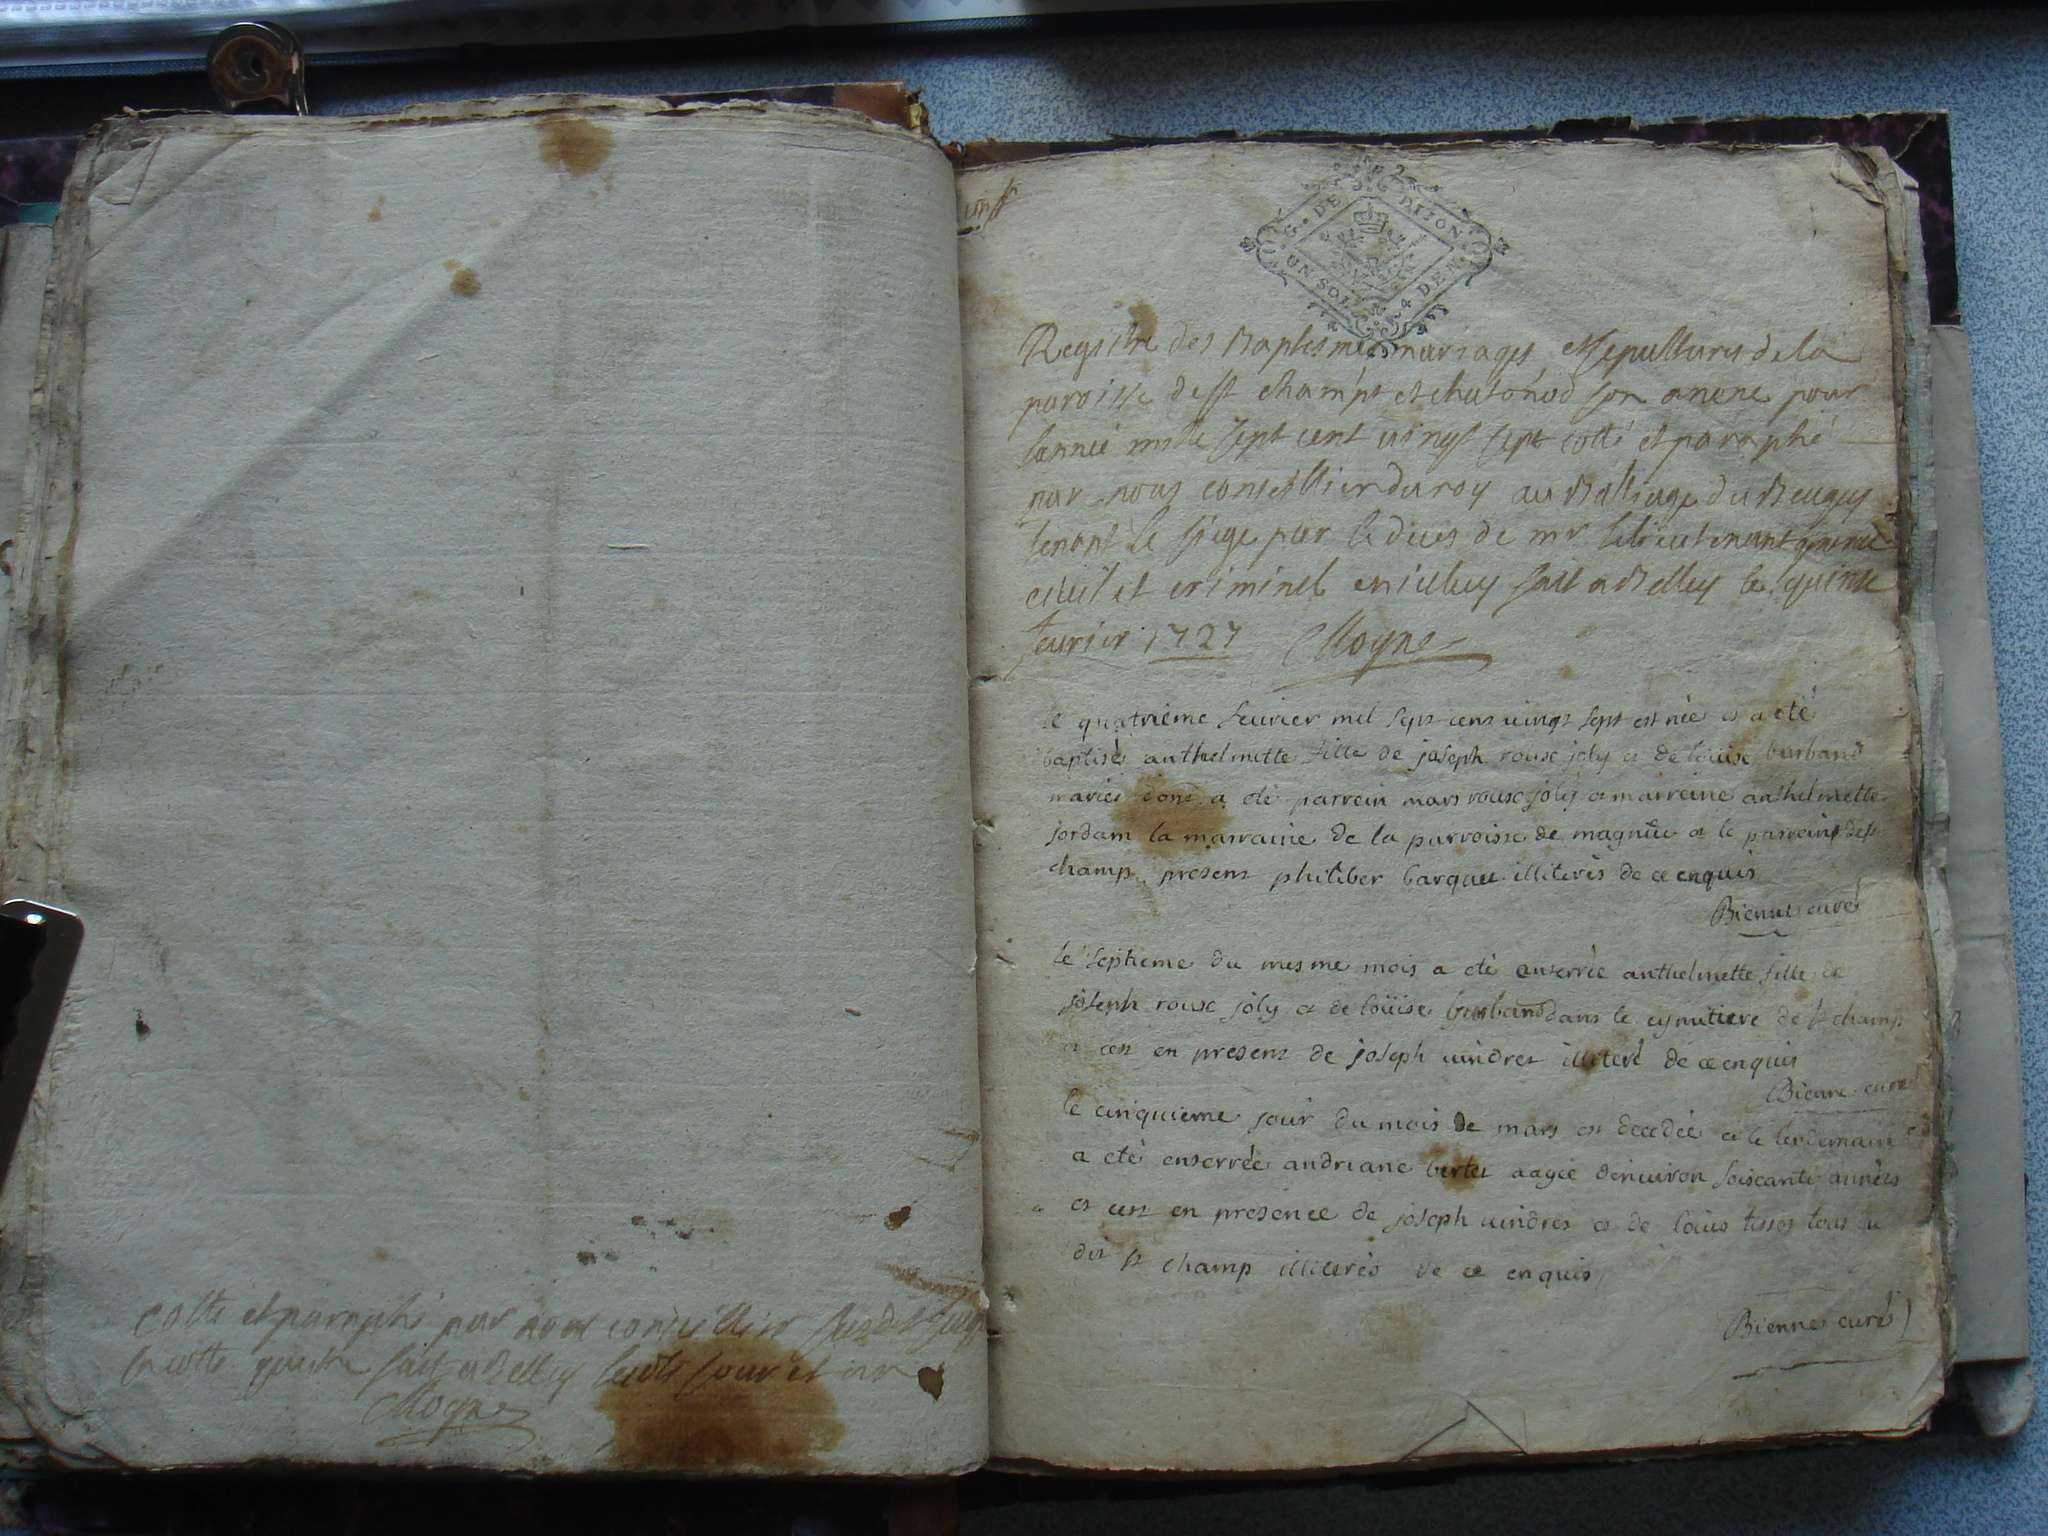 cotté et paraphé par nous conseillier
cotte quatre fait a Belley jour et an
Moyne
G. DE DIJON
UN SOL 4 DEN
Registre des Baptesmes mariages et sepultures de la
paroisse de st champt et chatonod son anexe pour
lannée mille sept cent vingt sept cotté et paraphé
par nous conseillier du roy au Balliage du Beugey
tenant le siege par le deces de mr le lieutenant general
civil et criminel en icelluy fait a Belley le quinze
feurier 1727 Moyne
le quatrieme feurier mil sept cent vingt sept est née et a eté
baptisée anthelmette fille de joseph roux joly et de loüise burband
mariés dont a eté parrein mars roux joly et marreine anthelmette
jordam la marraine de la parroisse de magnieu et le parrein de st
champ present philiber barquet illiterés de ce enquis
Bienne curé
le septieme du mesme mois a eté enterrée anthelmette fille de
joseph roux joly et de loüise burband dans le cymitiere de st champ
et cest en present de joseph vindret illiteré de ce enquis
Bienne curé
le cinquieme jour du mois de mars est decedée et le lendemain
a eté enterrée andriane bertet aagée denuiron soixante années
et cest en presence de joseph vindret et de loüis tissot tous du
dit st champ illiterés de ce enquis
Bienne curé